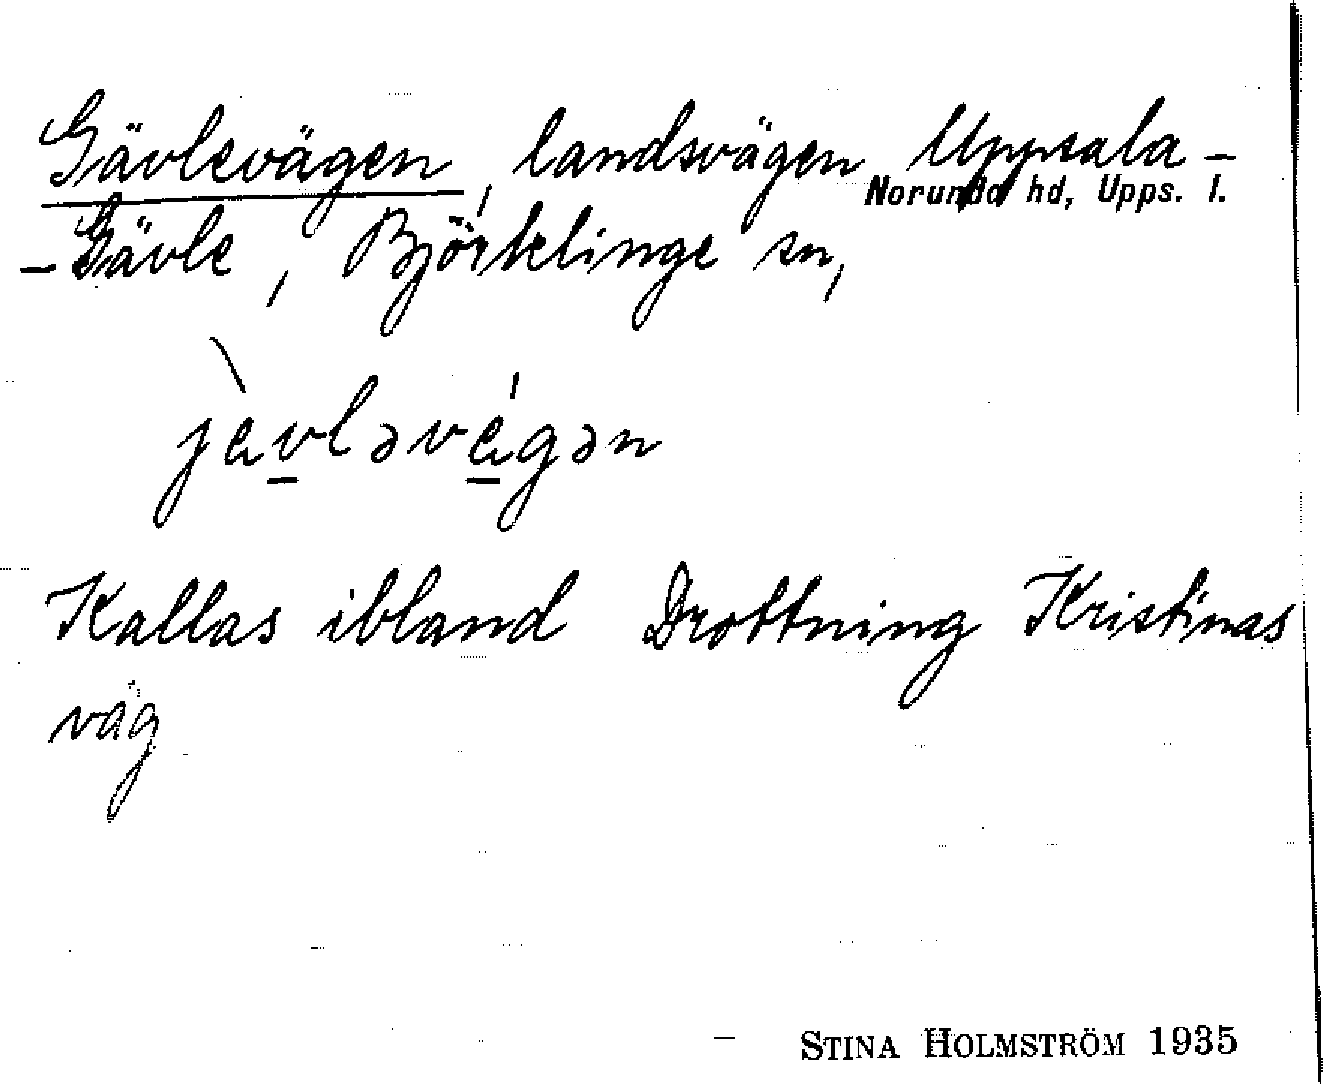 Gävlevägen, landsvägen Uppsala –
Norunda hd, Upps. l.
– Gävle, Björklinge sn,
jàvləvǽgən
Kallas ibland Drottning Kristinas
väg
STINA HOLMSTRÖM 1935